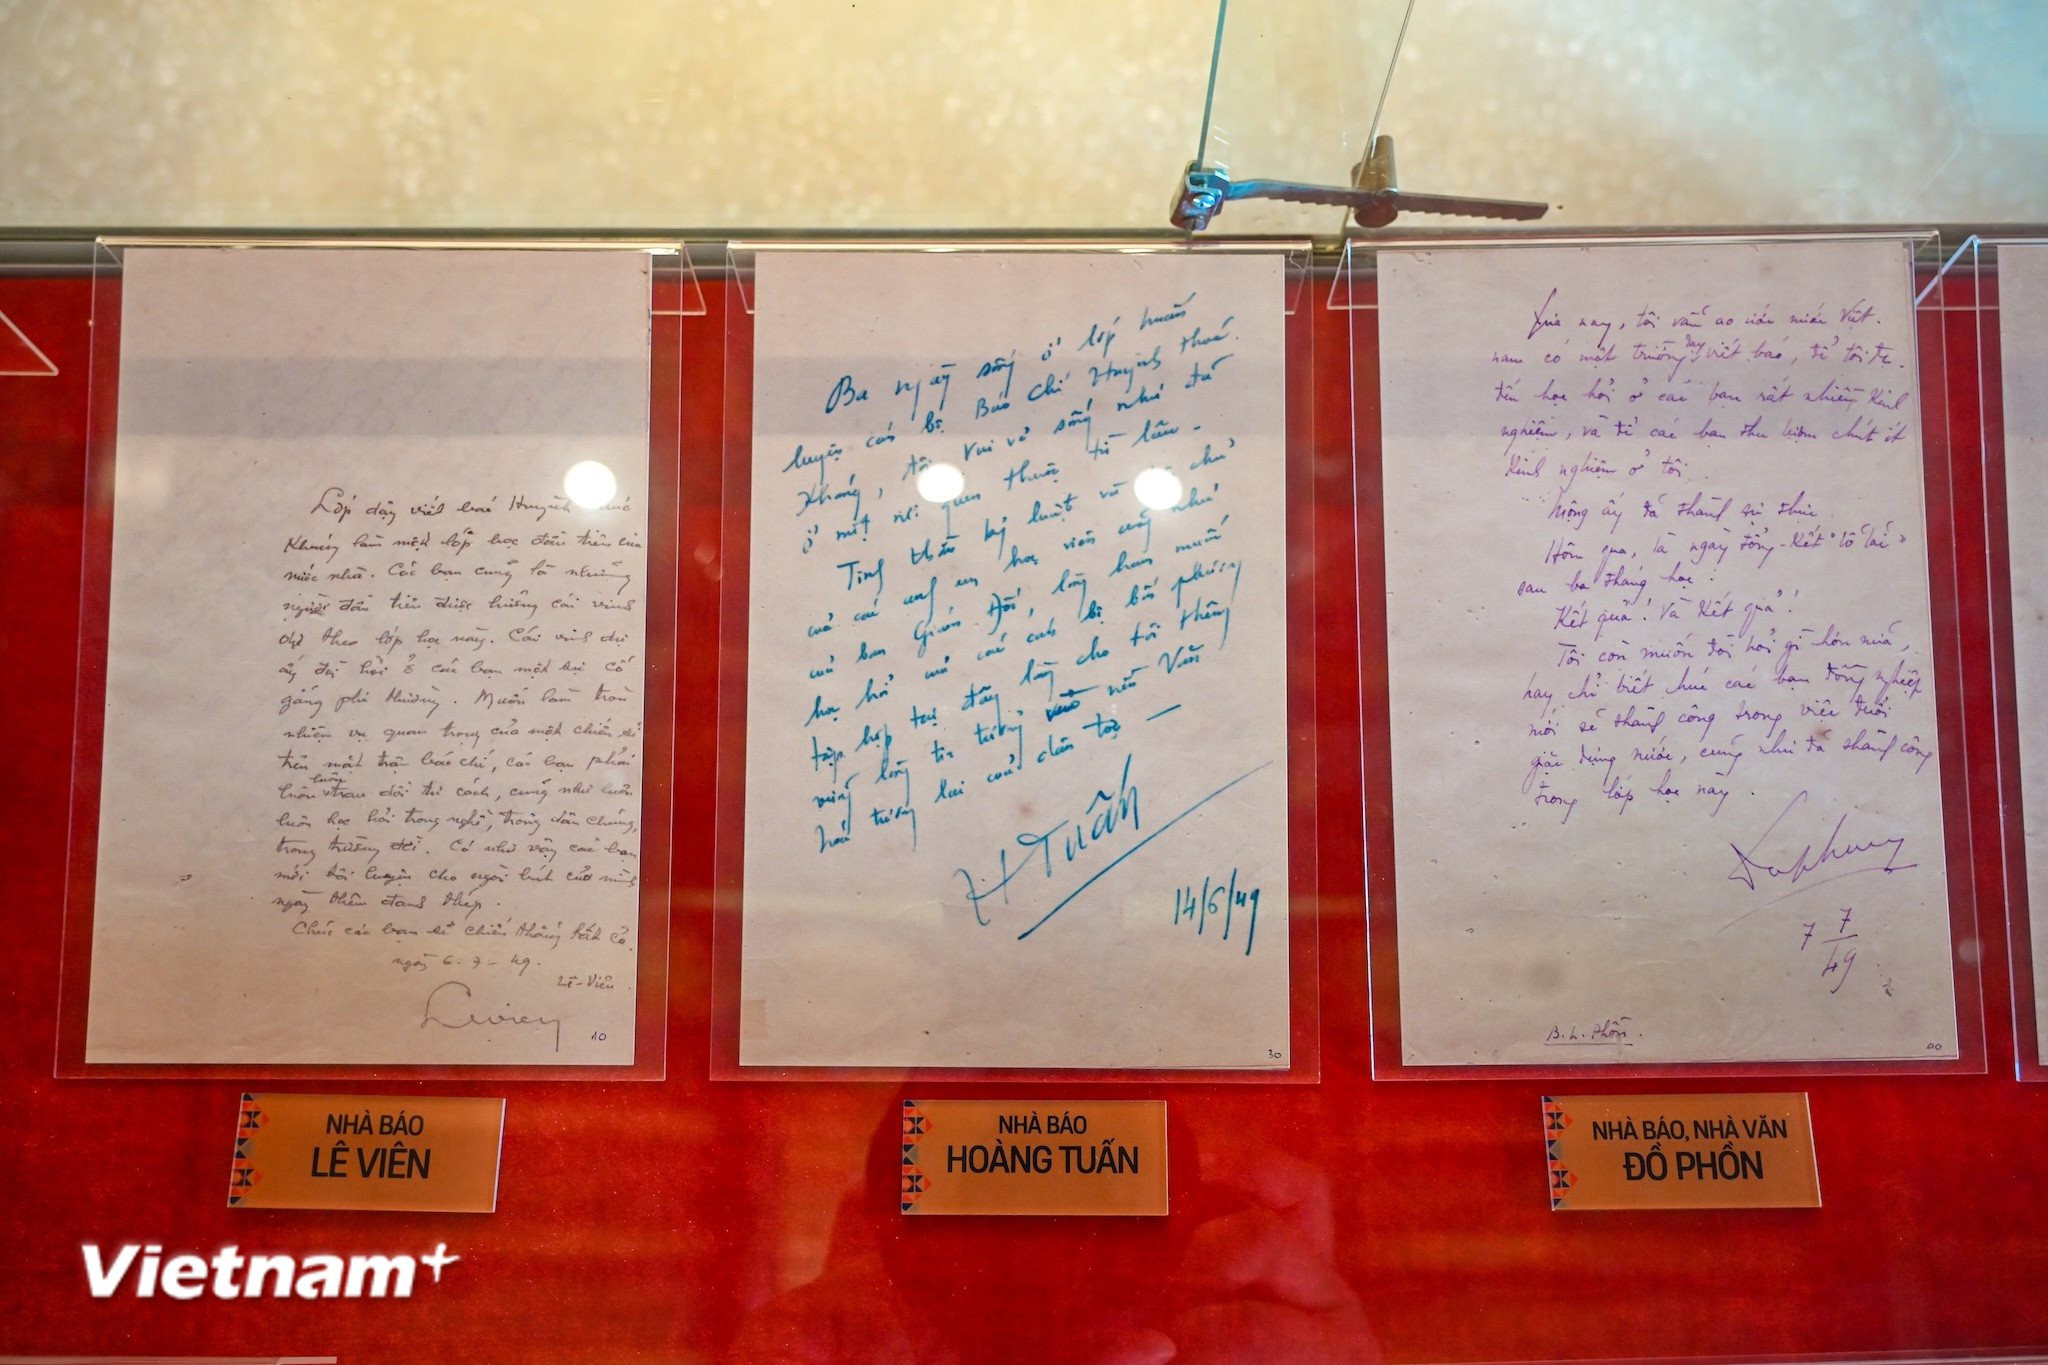 Lớp dậy viết báo Huỳnh
Kháng là một lớp học đầu tiên của
nước nhà. Các bạn cũng là những
người đầu tiên được hưởng cái vinh
dự theo lớp học này. Cái vinh dự
ấy đòi hỏi ở các bạn một sự cố
gắng phi thường. Muốn làm tròn
nhiệm vụ quan trọng của một chiến sĩ
trên mặt trận báo chí, các bạn phải
luôn luôn trau dồi tư cách, cũng như luôn
luôn học hỏi trong nghề, trong dân chúng,
trong trường đời. Có như vậy các bạn
mới tôi luyện cho ngòi bút của mình
ngày thêm đanh thép.
Chúc các bạn sẽ chiến thắng tất cả.
ngày 6-7-49.
Lê-Viên
10
NHÀ BÁO
LÊ VIÊN
Ba ngày sống ở lớp huấn
luyện cán bộ Báo chí Huỳnh thúc
Kháng, tôi vui vẻ sống như đã
ở một nơi quen thuộc từ lâu -
Tinh thần kỷ luật và chủ
của các anh em học viên cũng như
của ban Giám Đốc, lòng ham muốn
học hỏi của các cán bộ bốn phương
tập họp tại đây làm cho tôi thêm
vững lòng tin tưởng nền Văn
hoá tương lai của dân tộc —
H Tuấn
14/6/49
30
NHÀ BÁO
HOÀNG TUẤN
Xưa nay, tôi vẫn ao ước nước Việt-
nam có một trường dạy viết báo, để tôi được
đến học hỏi ở các bạn rất nhiều kinh
nghiệm, và để các bạn thu lượm chút ít
kinh nghiệm ở tôi.
Mộng ấy đã thành sự thực.
Hôm qua, là ngày tổng-kết "lỗ lãi"
sau ba tháng học.
Kết quả! Và kết quả!
Tôi còn muốn đòi hỏi gì hơn nữa,
hay chỉ biết chúc các bạn đồng nghiệp
mới sẽ thành công trong việc đuổi
giặc dựng nước, cũng như đã thành công
trong lớp học này.
7 7/49
B.L. Phồn.
40
NHÀ BÁO, NHÀ VĂN
ĐỒ PHỒN
Vietnam+